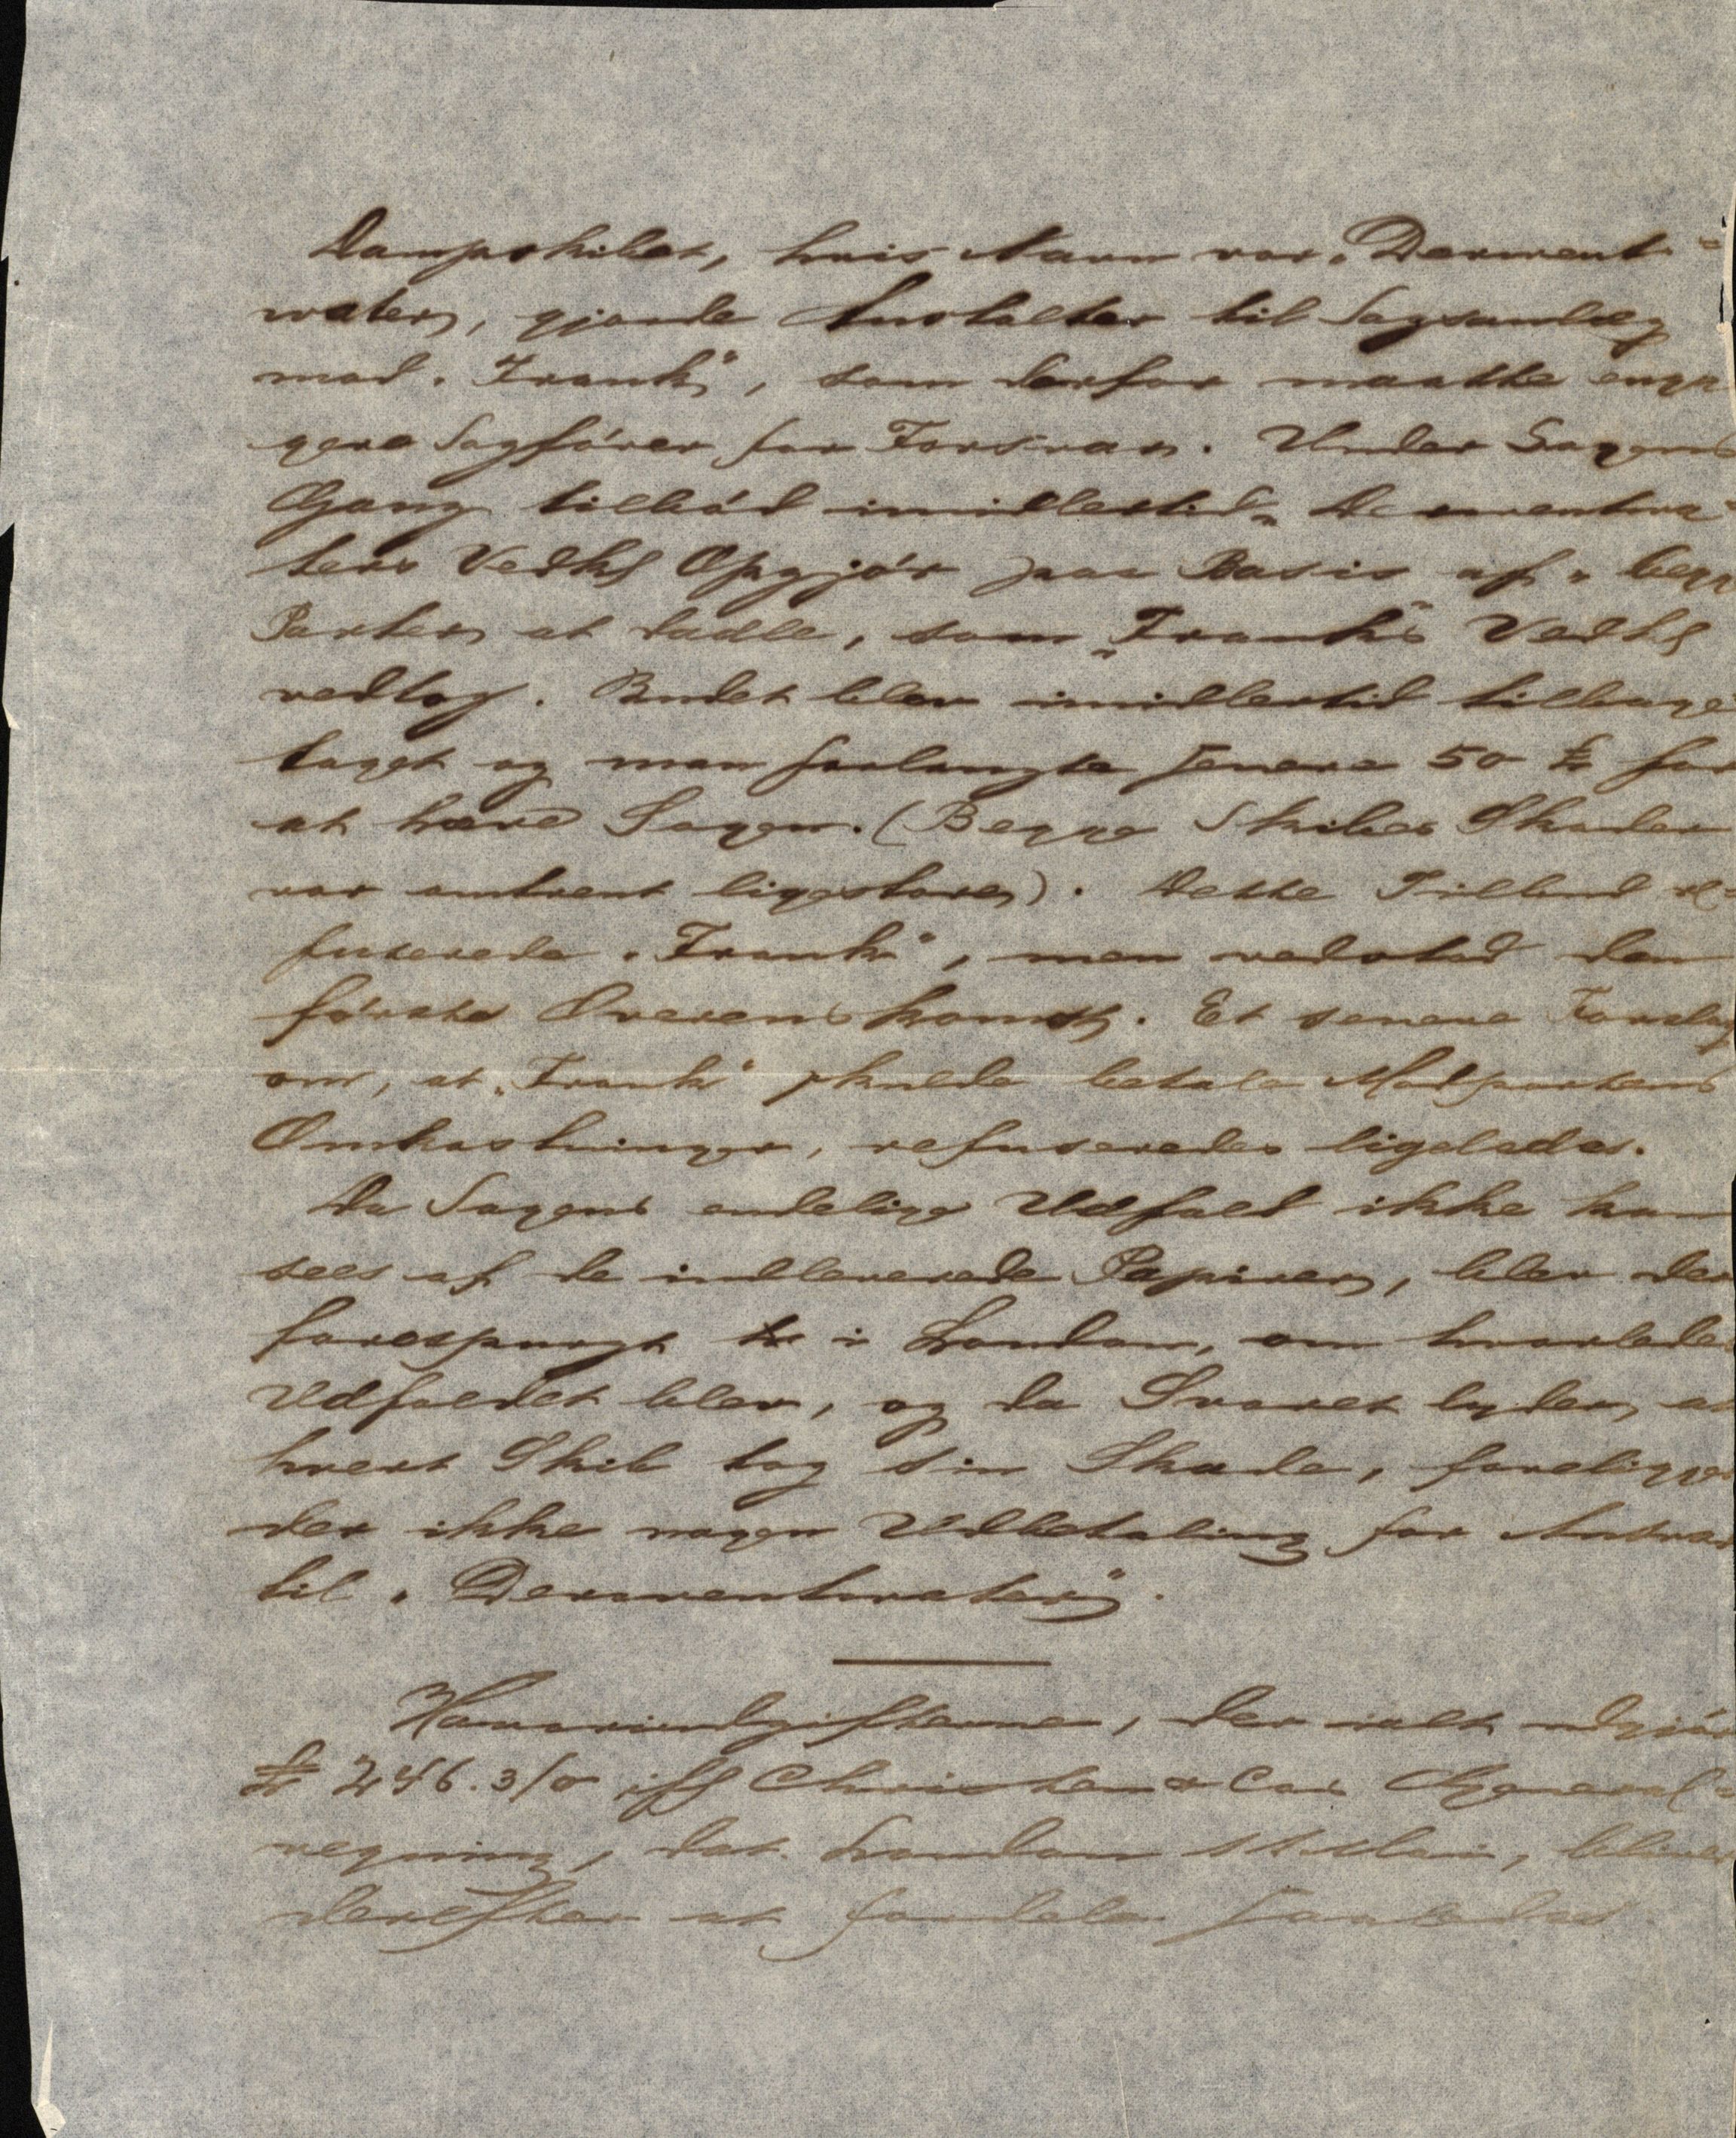 Dampskibet, hvis Navn var „Derwent=
water", gjorde Anstalter til Sagsanlæg
mod „Frank", som derfor maatte enga
gere Sagfører for Forsvar. Under Sagens
Gang tilbød imidlertid „Derwentwa
ters Vedk Opgjør paa Basis af „begge
Parter at dadle, som „Frank"s Vedk
vedtog. Budet blev imidlertid tilbage
taget og man forlangte senere 50 £ for
at hæve Sagen. (Begge Skibes Skader
var omtrent ligestore). Dette Tilbud re
fuserede „Frank", men vedstod den
første Overenskomst. Et senere Forslag
om, at „Frank" skulde betale Modpartens
Omkostninger, refuseredes ligeledes.
Da Sagens endelige Udfald ikke kan
sees af de indleverede Papirer, blev der
forespurgt i London, om hvorledes
Udfaldet blev, og da Svaret lyder, at
hvert Skib tog sin Skade, foreligger
der ikke nogen Udbetaling for Ansvar
til „Derwentwater".
Havariudgifterne, der ialt udgjør
£ 246.3/0 iflg Christen & Cos General=
regning, dat. London Mai, bliver
derefter at fordele saaledes